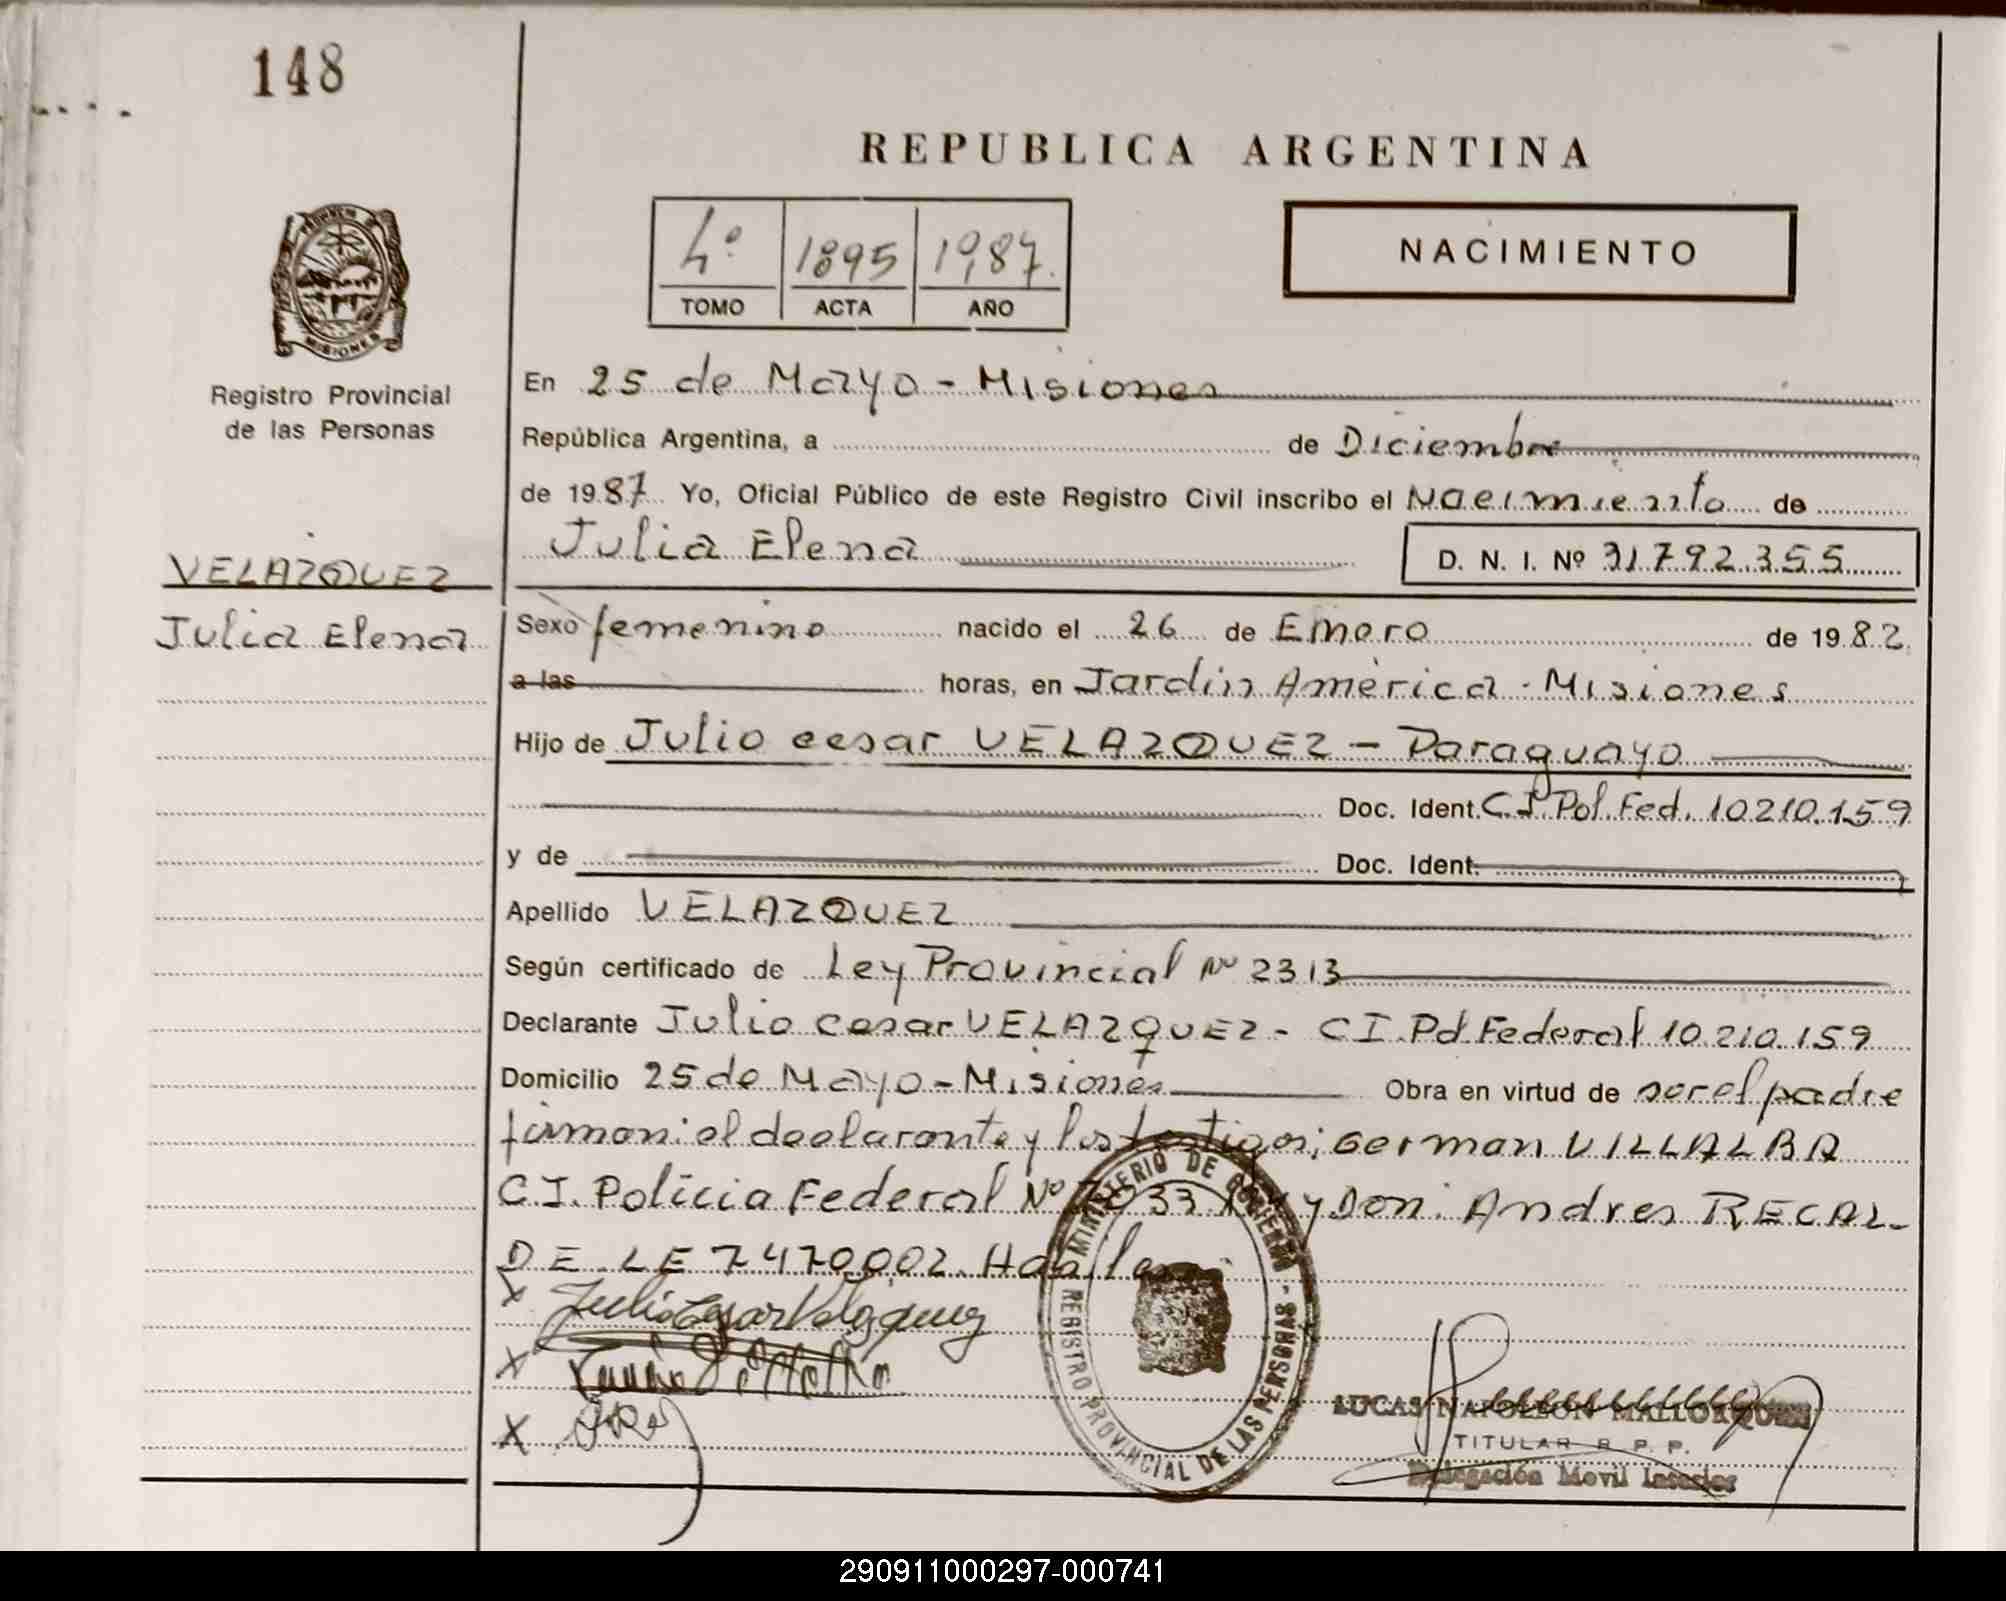 148
REPUBLICA ARGENTINA
4º 1895 1987.
TOMO ACTA AÑO
NACIMIENTO
MISIONES
Registro Provincial
de las Personas
VELAZQUEZ
Julia Elena
En 25 de Mayo - Misiones
República Argentina, a de Diciembre
de 1987 Yo, Oficial Público de este Registro Civil inscribo el Nacimiento de
Julia Elena D. N. I. Nº 31.792.355
Sexo femenino nacido el 26 de Enero de 1982.
a las horas, en Jardín América - Misiones
Hijo de Julio cesar VELAZQUEZ - Paraguayo
Doc. Ident. C.I. Pol. Fed. 10.210.159
y de Doc. Ident.
Apellido VELAZQUEZ
Según certificado de Ley Provincial Nº 2313
Declarante Julio cesar VELAZQUEZ - C.I. Pol Federal 10.210.159
Domicilio 25 de Mayo - Misiones Obra en virtud de ser el padre
firman: el declarante y los testigos; German VILLALBA
C.I. Policia Federal Nº y Don: Andres RECAL-
DE LE 7470.002. Habiles
x Julio Cesar Velazquez
x
x
MINISTERIO DE GOBIERNO - REGISTRO PROVINCIAL DE LAS PERSONAS
LUCAS NAPOLEON
TITULAR R. P. P.
Delegación Movil Interior
290911000297-000741